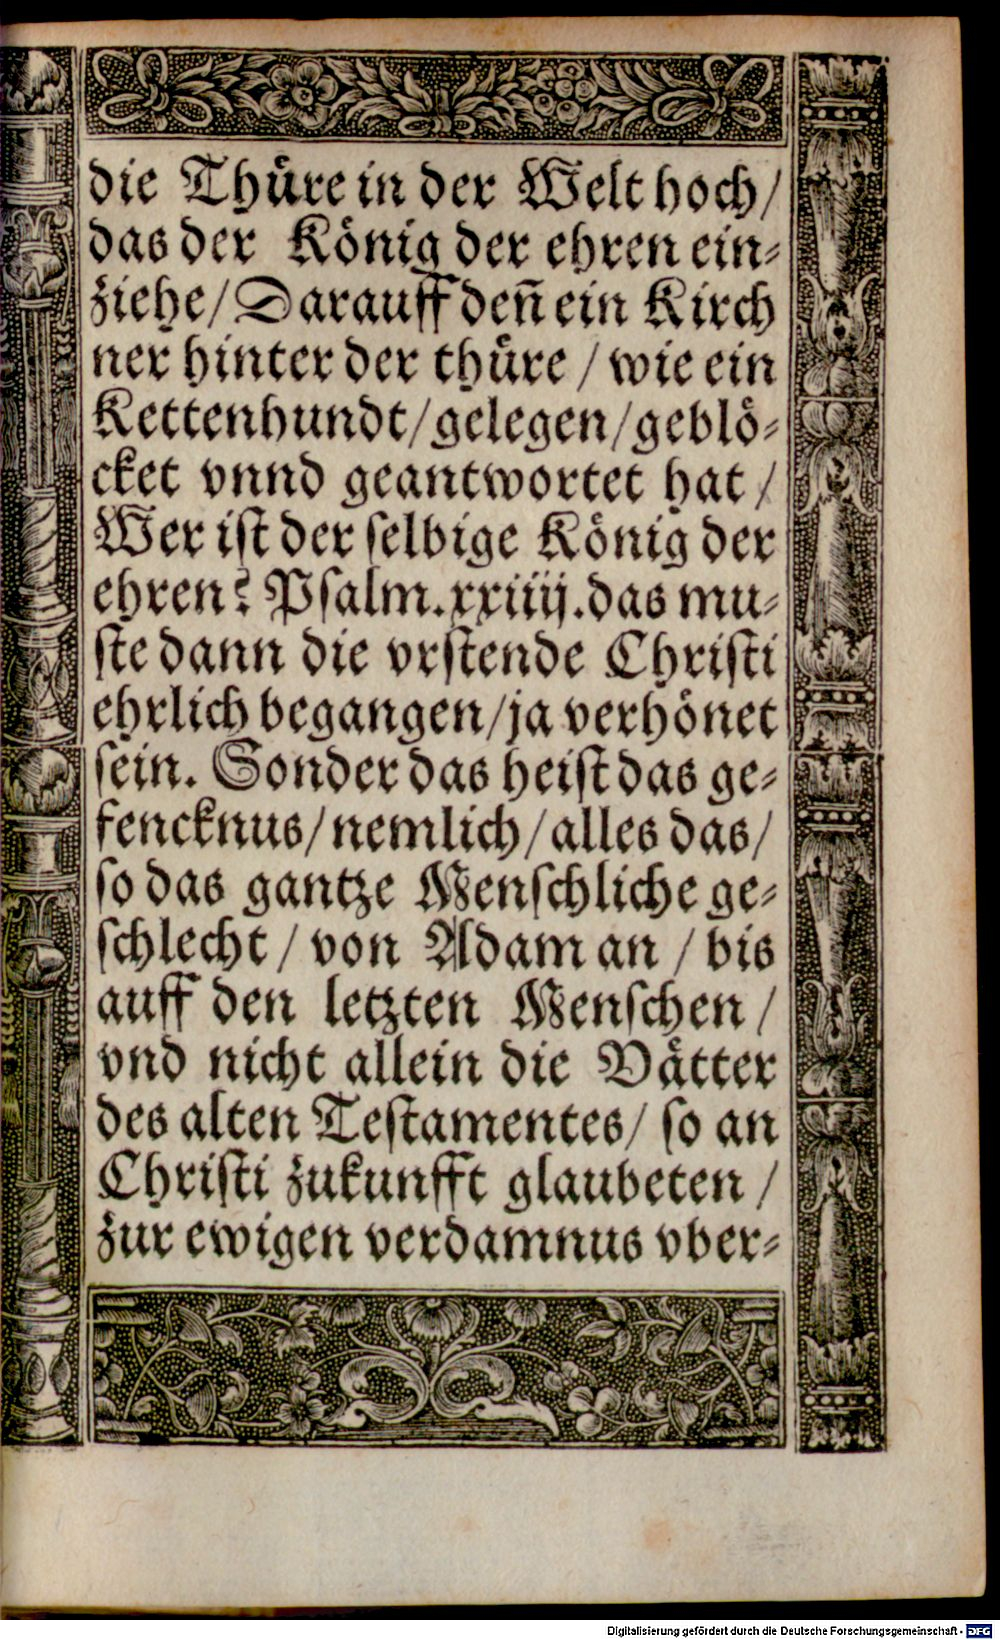 die Thüre in der Welt hoch/
das der König der ehren ein⸗
ziehe/ Darauff deñ ein Kirch
ner hinter der thüre / wie ein
Kettenhundt/ gelegen/ geblö⸗
cket vnnd geantwortet hat /
Wer ist der selbige König der
ehren? Psalm. xxiiij. das mu⸗
ste dann die vrstende Christi
ehrlich begangen/ ja verhönet
sein. Sonder das heist das ge⸗
fencknus/ nemlich/ alles das/
so das gantze Menschliche ge⸗
schlecht / von Adam an / bis
auff den letzten Menschen /
vnd nicht allein die Vätter
des alten Testamentes/ so an
Christi zukunfft glaubeten /
zur ewigen verdamnus vber⸗
Digitalisierung gefördert durch die Deutsche Forschungsgemeinschaft - DFG